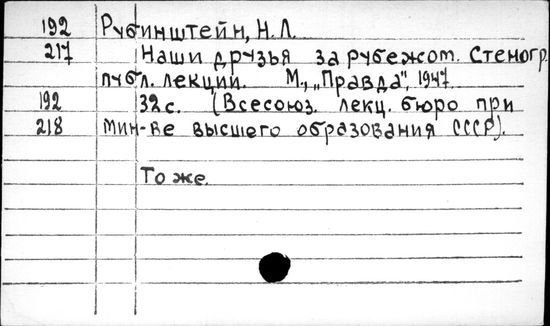 192 Рубинштейн, Н.Л.
217 Наши друзья за рубежом. Стеногр.
публ. лекции. М., „Правда", 1947.
192 32 с. (Всесоюз. лекц. бюро при
218 Мин-ве высшего образования СССР).
То же.